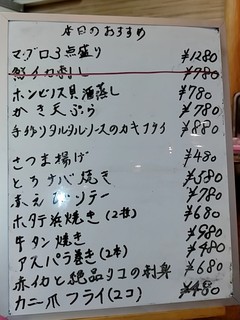 本日のおすすめ
マグロ3点盛り ¥1280
¥780
ホンビノス貝酒蒸し ¥780
かき天ぷら ¥780
手作りタルタルソースのカキフライ ¥880
さつま揚げ ¥480
とろサバ焼き ¥580
ソテー ¥780
ホタテ浜焼き(2ヶ) ¥680
牛タン焼き ¥980
アスパラ巻き(2本) ¥480
赤イカと絶品タコの刺身 ¥680
カニ爪フライ(2コ) ¥480